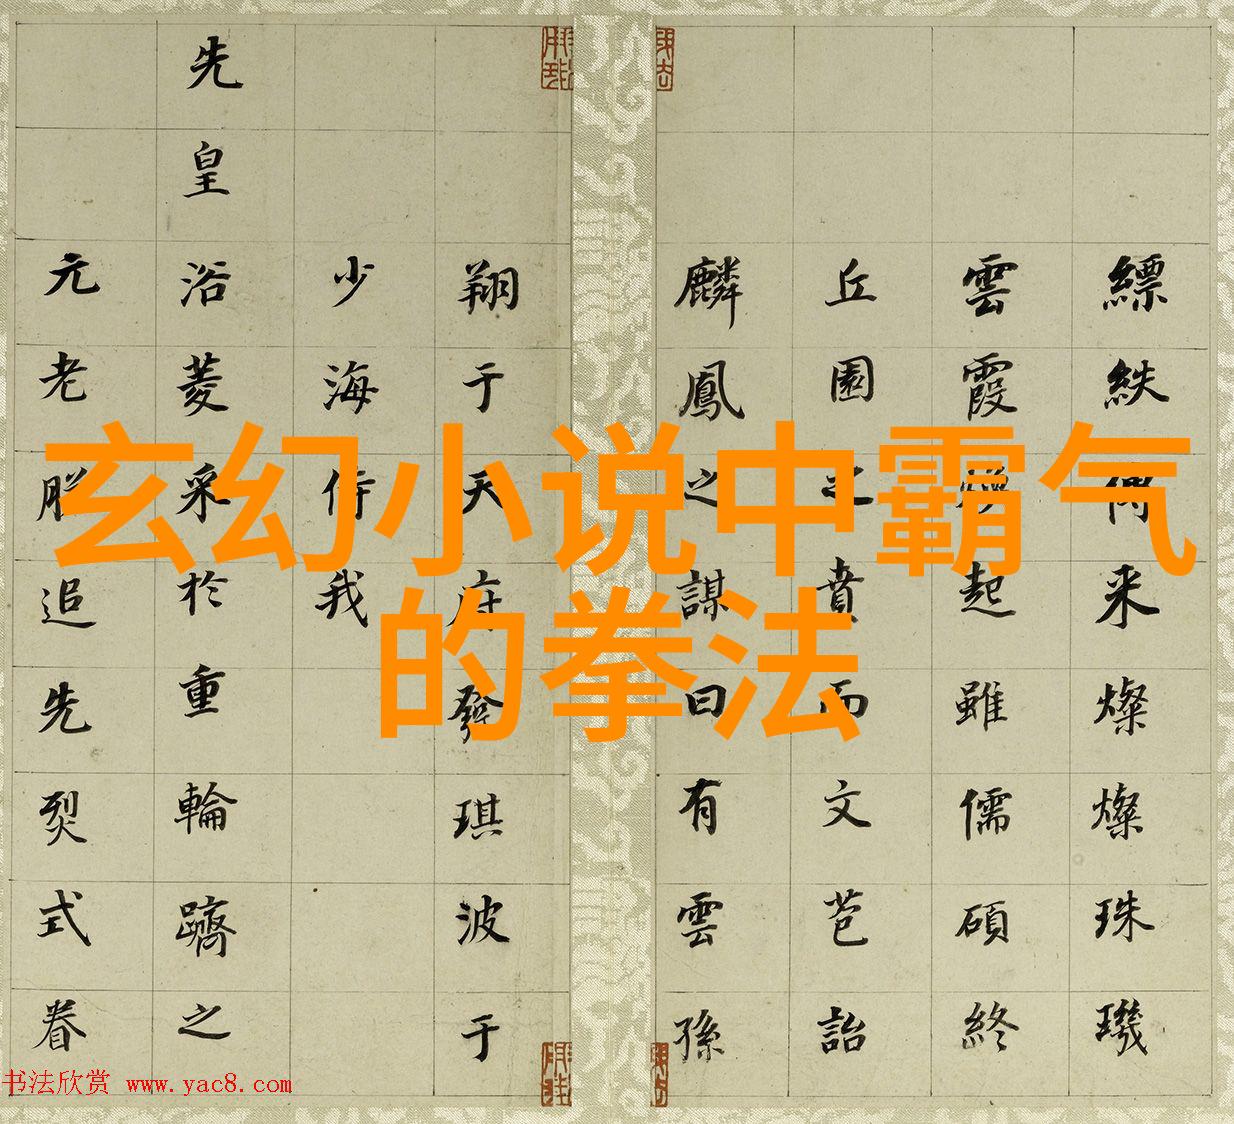 玄幻小说中霸气
的拳法
縹紩来燦燦珠璣
雲霞起雖儒碩終
丘園之賁而文苞詒
麟鳳之謀曰有雲孫
翔于天府發琪波于
少海侍我
先皇浴菱采於重輪躋之
元老脱追先烈式眷
书法欣赏 www.yac8.com